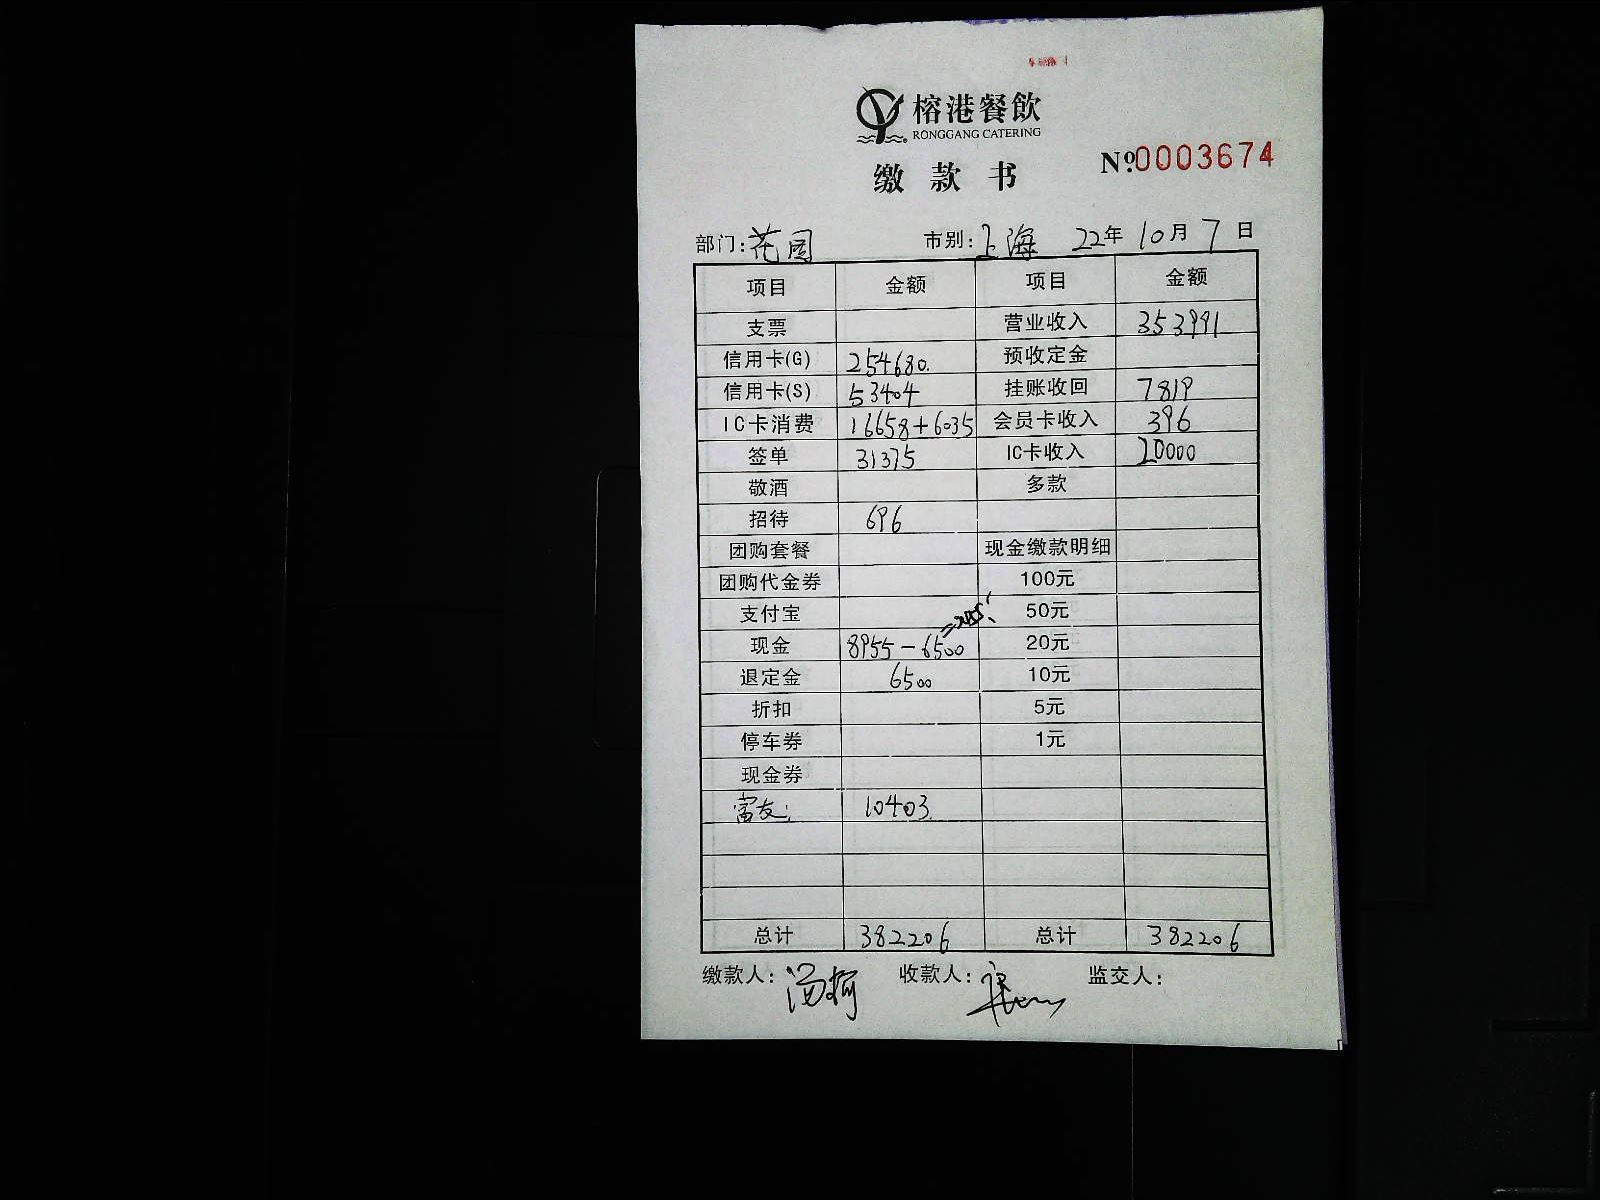 榕港餐飲
RONGGANG CATERING
缴款书
Nº.0003674
部门：花园 市别：上海 22年 10月 7日
项目 金额 项目 金额
支票 营业收入 353991
信用卡(G) 254680. 预收定金
信用卡(S) 53404 挂账收回 7819
IC卡消费 16658+6035 会员卡收入 396
签单 31375 IC卡收入 20000
敬酒 多款
招待 696
团购套餐 现金缴款明细
团购代金券 100元
支付宝 50元
现金 8955-6500=2455 20元
退定金 6500 10元
折扣 5元
停车券 1元
现金券
富友: 10403
总计 382206 总计 382206
缴款人： 收款人： 监交人：